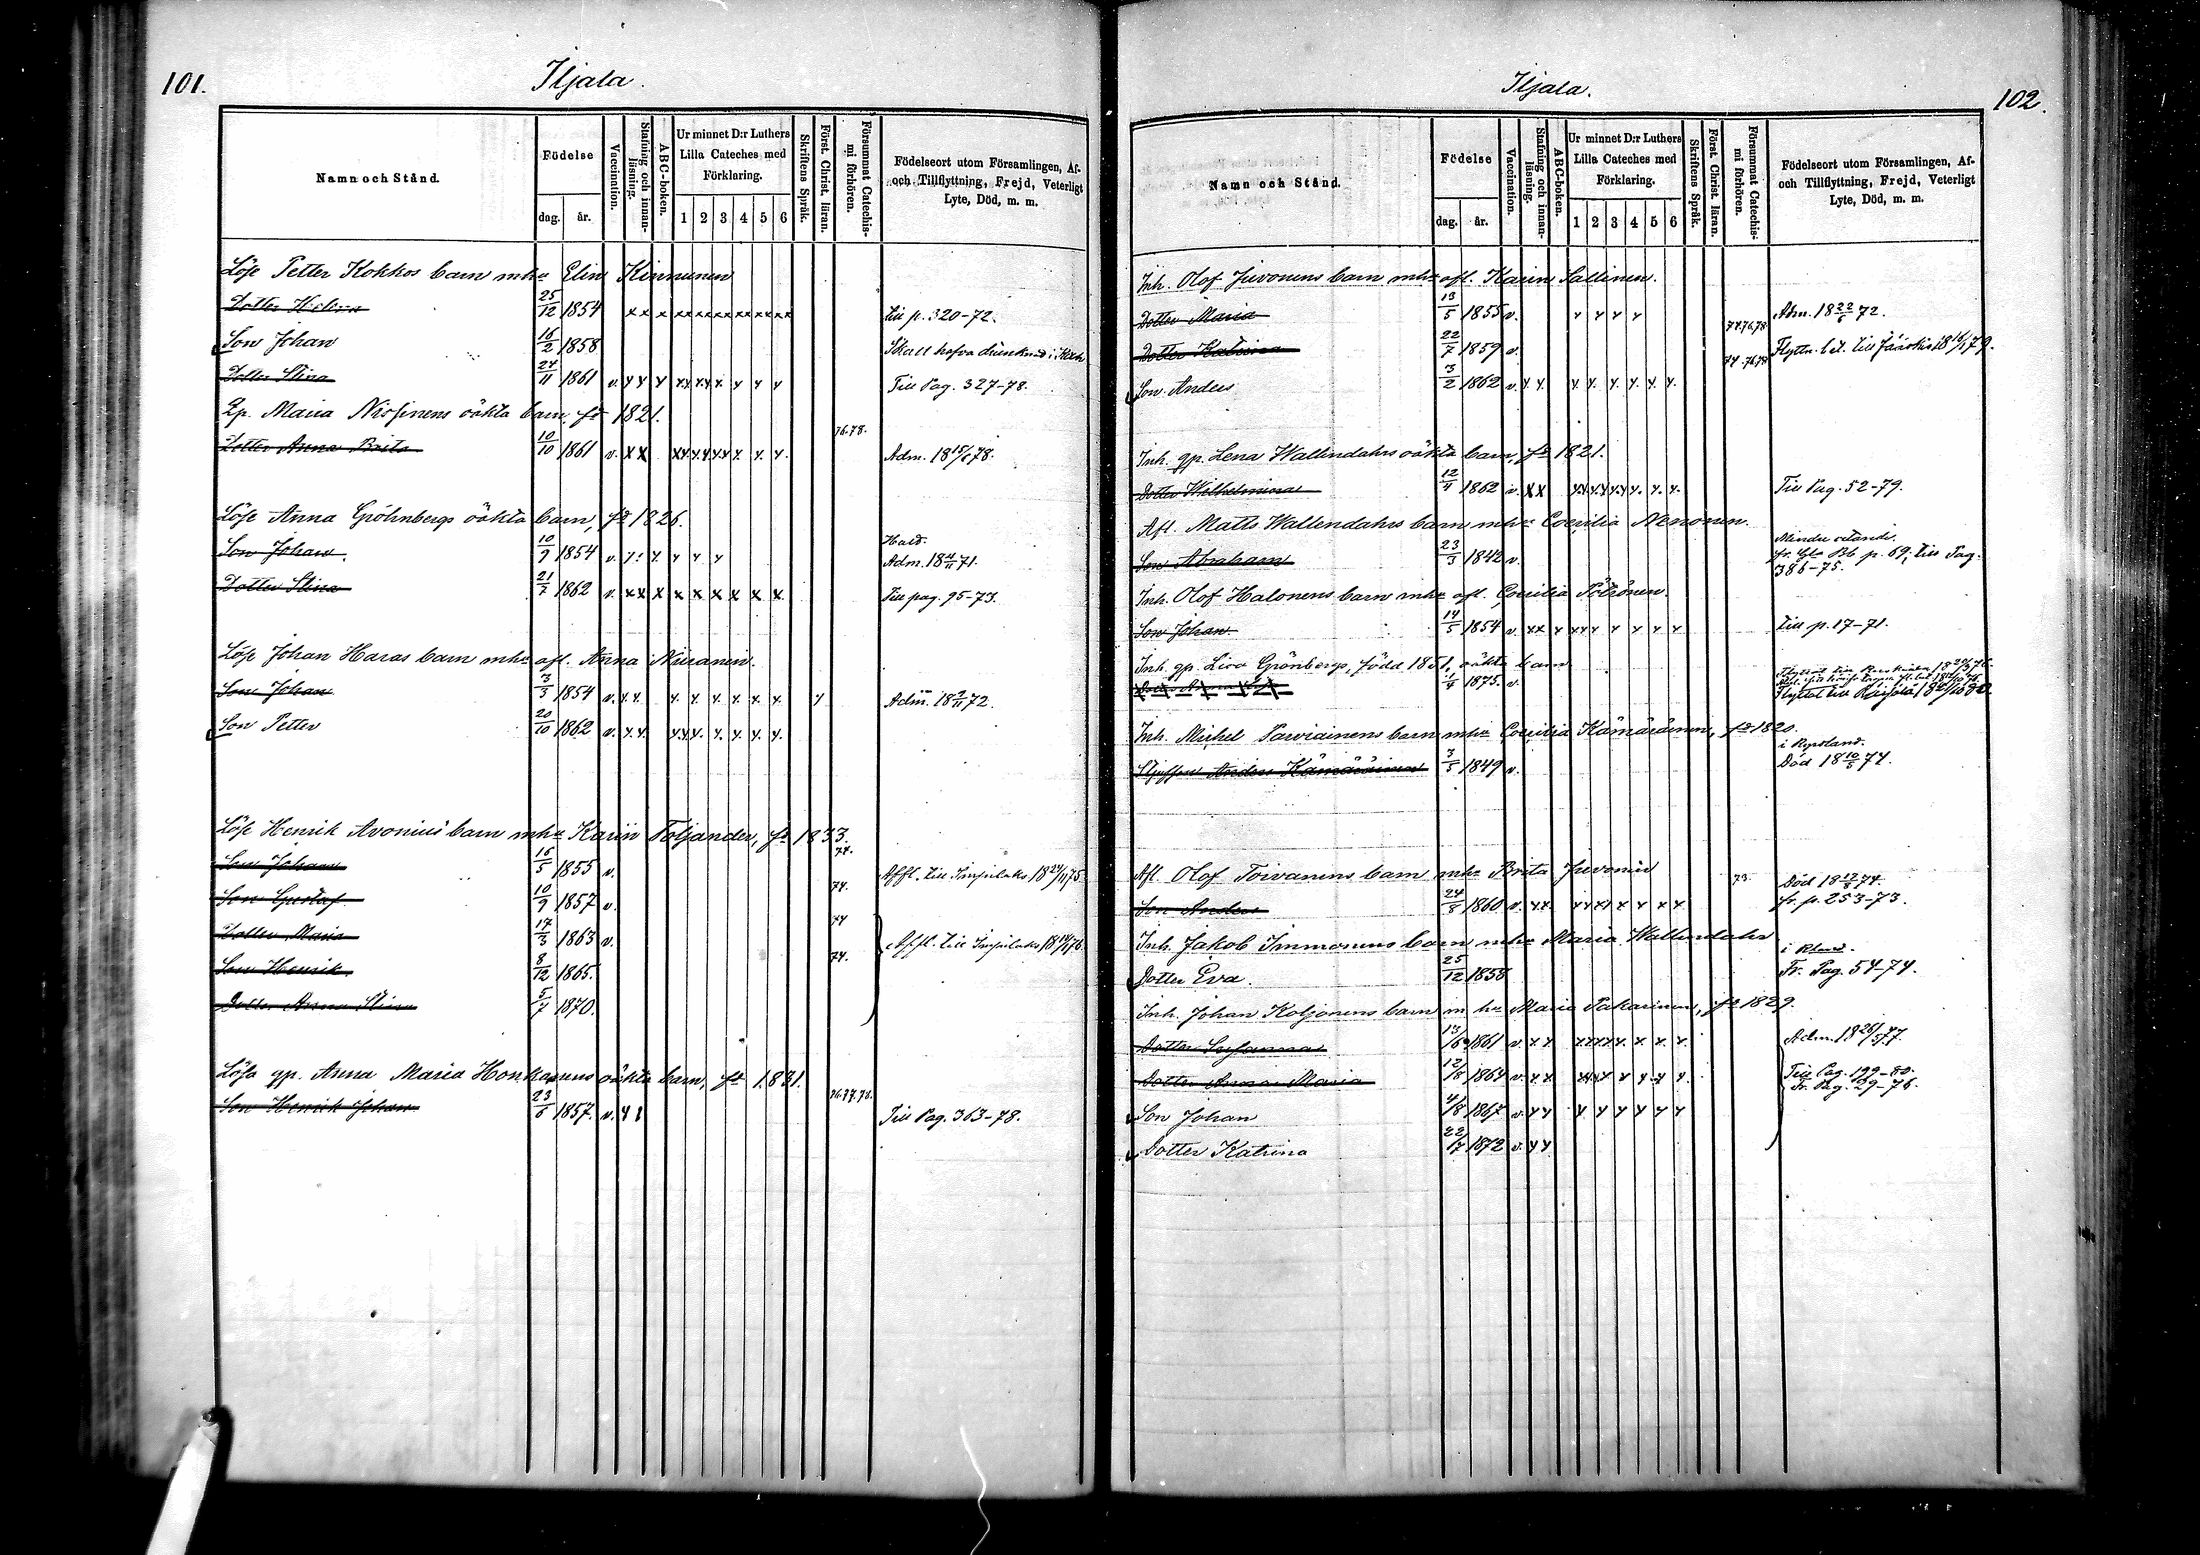 101.
Iljala.
Namn och Stånd.
Födelse
dag.
år.
Vaccination.
Stafning och innan-
läsning.
ABC-boken.
Ur minnet D:r Luthers
Lilla Cateches med
Förklaring.
1 2 3 4 5 6
Skriftens Språk.
Först. Christ. läran.
Försummat Catechis-
mi förhören.
Födelseort utom Församlingen, Af-
och Tillflyttning, Frejd, Veterligt
Lyte, Död, m. m.
Löse Petter Kokkos barn mhu Elin Kinnunen
Dotter Helena 25/12 1854 x x x x x x x x x x x x till p. 320-72.
Son Johan 16/2 1858 Skall hafva drunknat i
Dotter Stina 24/11 1861 v. x x x x x x x x x x x Till Pag. 327-78.
Qp. Maria Nissinens oäkta barn, fd 1821.
Dotter Anna Brita 10/10 1861 v. x x x x x x x x x x 76.78. Adm. 18 15/6 78.
Löse Anna Gröhnbergs oäkta barn, fd 1826.
Son Johan. 10/9 1854 v. x x x x x
Adm. 18 4/11 71.
Dotter Stina 21/7 1862 v. x x x x x x x x x Till pag. 95-73.
Löse Johan Haras barn mhu afl. Anna Nuranen.
Son Johan 3/3 1854 v. x x x x x x x x x Adm. 18 2/11 72.
Son Petter 20/10 1862 v. x x x x x x x x x
Löse Henrik Avonius barn mhu Karin Toljander, fd 1833.
Son Johan 16/5 1855 v. 74. Affl. till Impilaks 18 24/11 75
Son Gustaf 10/9 1857 v. 74.
Dotter Maria 17/3 1863 v. 74 Affl. till Impilaks
Son Henrik 8/12 1865. 74.
Dotter Anna Stina 5/7 1870.
Lösa qp. Anna Maria Honkanens oäkta barn, fd 1831.
Son Henrik Johan 23/6 1857. v. 76.77.78. Till Pag. 363-78.
102.
Iljala.
Namn och Stånd.
Födelse
dag.
år.
Vaccination.
Stafning och innan-
läsning.
ABC-boken.
Ur minnet D:r Luthers
Lilla Cateches med
Förklaring.
1 2 3 4 5 6
Skriftens Språk.
Först. Christ. läran.
Försummat Catechis-
mi förhören.
Födelseort utom Församlingen, Af-
och Tillflyttning, Frejd, Veterligt
Lyte, Död, m. m.
Inh. Olof Juvonens barn mhu afl. Karin Sallinen.
Dotter Maria 13/5 1855 v. x x x x Adm. 18 22/6 72.
Dotter Katrina 22/7 1859 v. 74.76.78 Flyttn. bet. till Jääskis
Son Anders 3/2 1862 v. x x x x x x x x
Inh. qp. Lena Wallendahrs oäkta barn, fd 1821.
Dotter Wilhelmina 12/4 1862 v. x x x x x x x x x x Till Pag. 52-79.
Afl. Matts Wallendahrs barn mhu Coecilia Nenonen.
Son Abraham 23/3 1842 v. Mindre vetande.
p. 69; till Pag.
386-75.
Inh. Olof Halonens barn mhu afl. Coecilia Pötrönen.
Son Johan 14/5 1854 v. x x x x x x x x x x till p. 17-71.
Inh. qp. Lisa Grönbergs, född 1851, oäkta barn
1/4 1875. v.
Inh. Michel Parviainens barn mhu Coecilia Kämäräinen, fd 1820.
Styfson Anders Kämäräinen 3/3 1849 v. i Ryssland.
Död 18 10/5 74.
Afl. Olof Toivanens barn mhu Brita Juvonen
Son Anders 24/8 1860 v. x x x x x x x x x 73. Död 18 12/8 74.
fr. p. 253-73.
Inh. Jakob Immonens barn mhu Maria Wallendahr
Dotter Eva. 25/12 1858 Fr. Pag. 54-74.
Inh. Johan Koljonens barn mhu Maria Pakarinen, fd 1829.
Dotter Susanna 13/6 1861 v. x x x x x x x x x x Adm. 18 26/5 77.
Dotter Anna Maria 12/8 1864 v. x x x x x x x x x Till Pag. 199-80.
Fr. Pag. 29-76.
Son Johan 4/8 1867 v. x x x x x x x x
Dotter Katrina 22/7 1872 v. x x